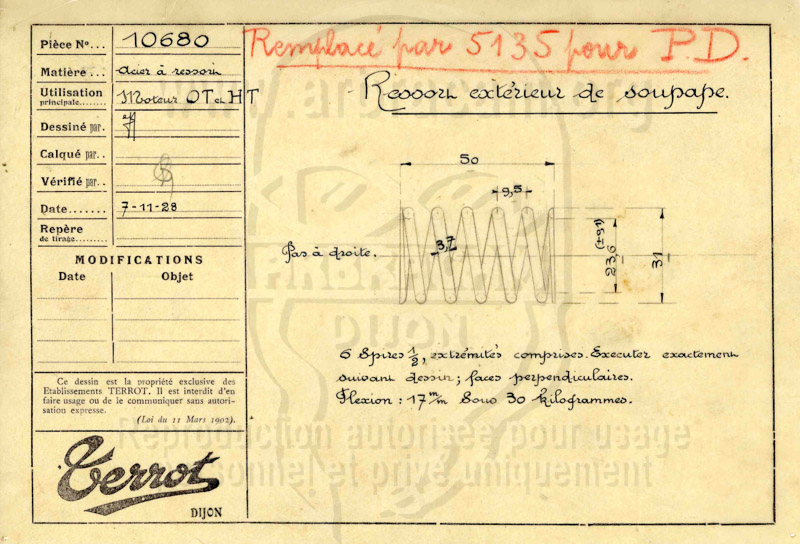 Pièce Nº... 10680
Matière... Acier à ressort
Utilisation principale... Moteur OT et HT
Dessiné par.
Calqué par..
Vérifié par..
Date....... 7-11-28
Repère de tirage..
MODIFICATIONS
Date Objet
Ce dessin est la propriété exclusive des
Etablissements TERROT. Il est interdit d'en
faire usage ou de le communiquer sans autori-
sation expresse.
(Loi du 11 Mars 1902).
Terrot
DIJON
Remplacé par 5135 pour P.D.
Ressort extérieur de soupape.
50
9,5
3,7
Pas à droite.
23,6
31
DIJON
6 Spires 1/2, extrémités comprises. Executer exactement
suivant dessin; faces perpendiculaires.
Flexion: 17 m/m Sous 30 kilogrammes.
Reproduction autorisée pour usage
personnel et privé uniquement